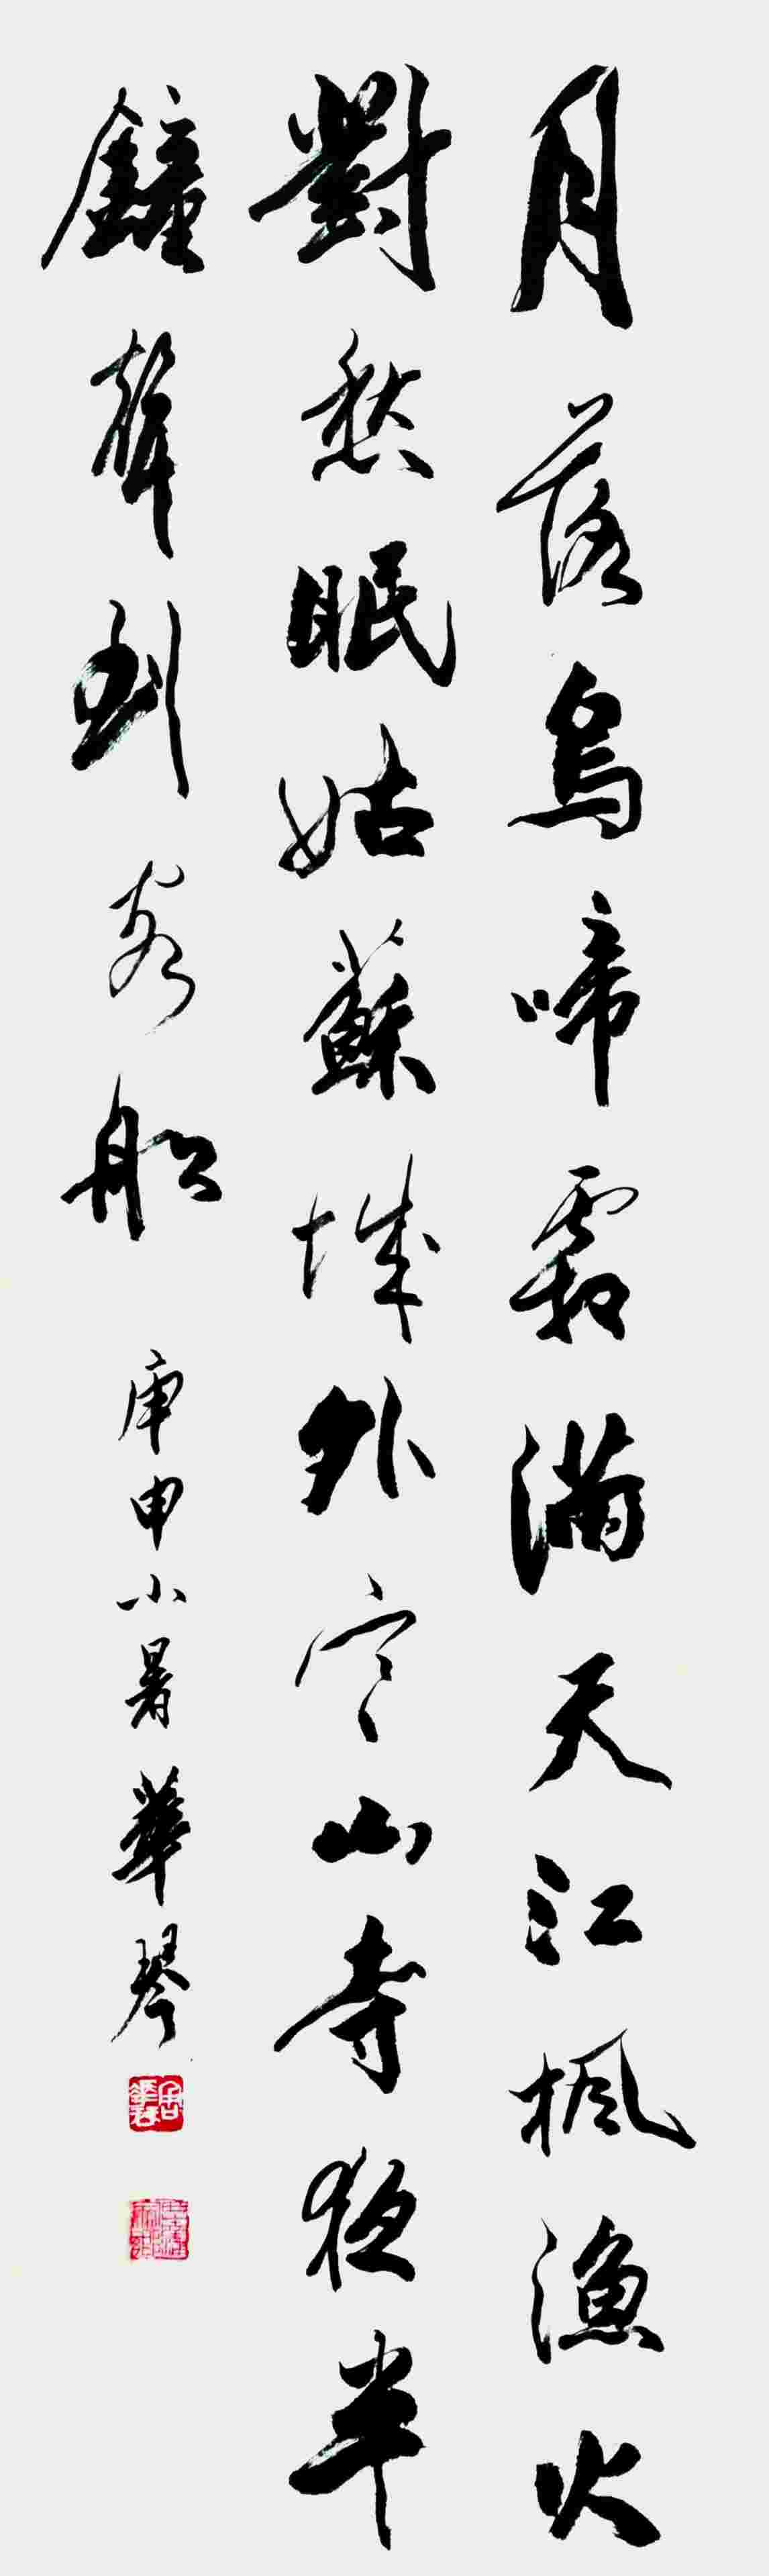 月落烏啼霜滿天江楓漁火
對愁眠姑蘇城外寒山寺夜半
鐘聲到客船 庚申小暑華琴